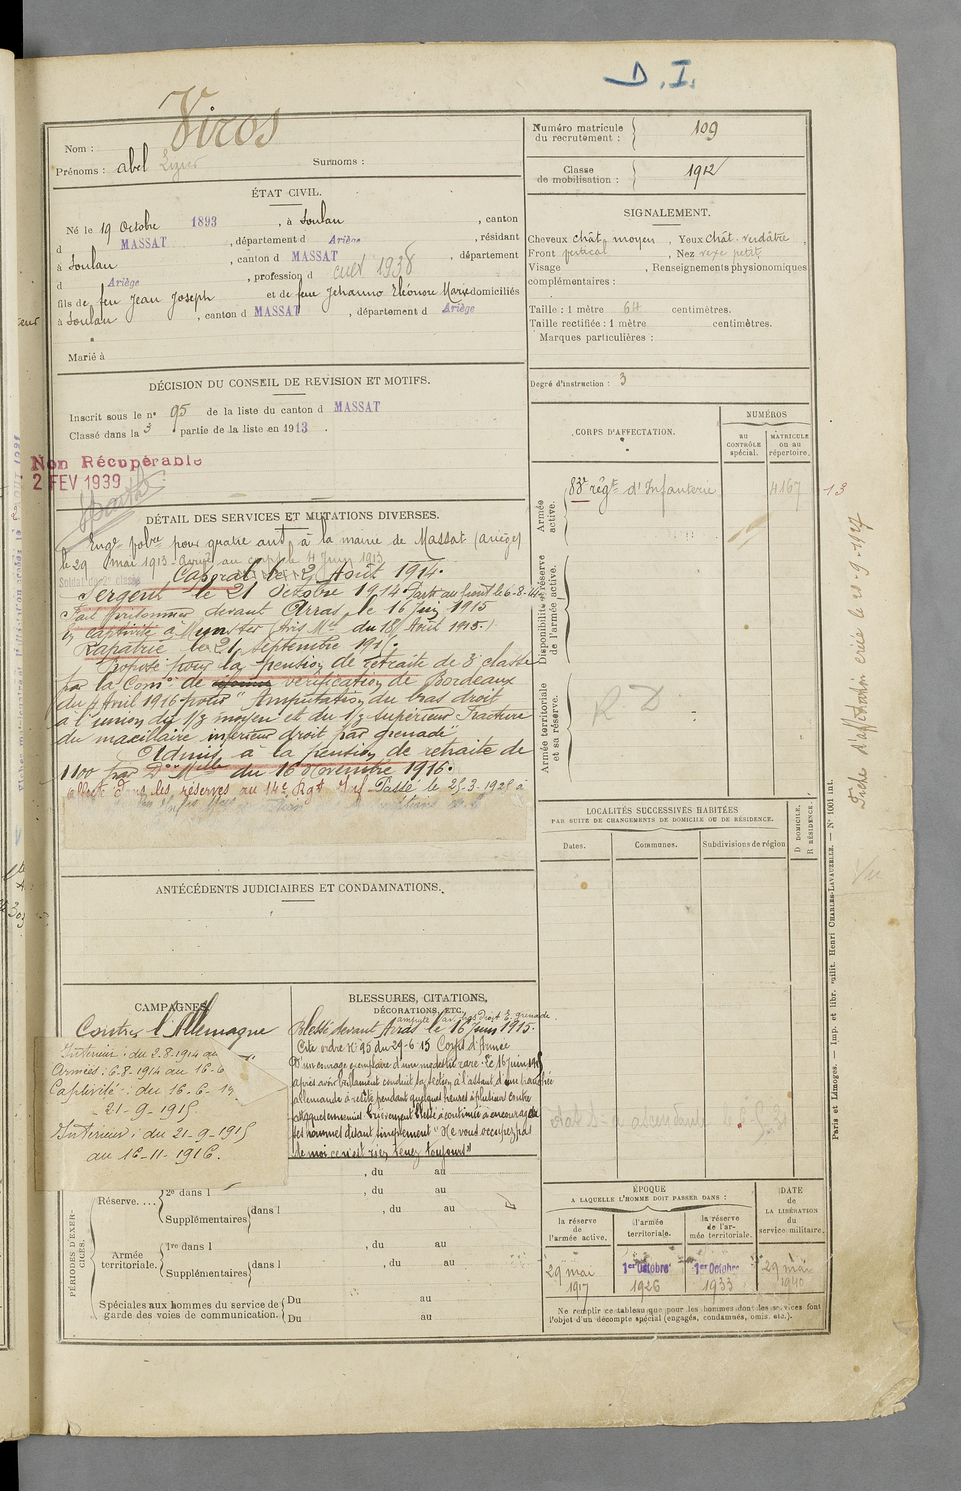 D. I.
Viros
Nom :
Prénoms : abel Lizier Surnoms :
Numéro matricule du recrutement : 109
Classe de mobilisation : 1912
ÉTAT CIVIL.
Né le 19 Octobre 1893, à Soulan, canton
d MASSAT, département d Ariège, résidant
à Soulan, canton d MASSAT, département
d Ariège, profession d cult 1938
fils de feu Jean Joseph et de feue Jehanno Eléonore Marie domiciliés
à Soulan, canton d MASSAT, département d Ariège
Marié à
SIGNALEMENT.
Cheveux chât. moyen, Yeux chât. verdâtre,
Front vertical, Nez vexe petit
Visage , Renseignements physionomiques
complémentaires :
Taille : 1 mètre 64 centimètres.
Taille rectifiée : 1 mètre centimètres.
Marques particulières :
Degré d'instruction : 3
DÉCISION DU CONSEIL DE REVISION ET MOTIFS.
Inscrit sous le n° 95 de la liste du canton d MASSAT
Classé dans la 3 partie de la liste en 1913.
Non Récupérable
2 FEV 1939
DÉTAIL DES SERVICES ET MUTATIONS DIVERSES.
Eng. pour quatre ans, à la mairie de Massat (Ariège)
le 29 mai 1913 - Arrivé au corps le 4 Juin 1913
Soldat de 2e classe
Caporal le 2 Août 1914.
Sergent le 21 Octobre 1914. Parti au front le 6-8-14
Fait Prisonnier devant Arras, le 16 Juin 1915
En captivité à Munster (Avis Mel du 18 Août 1915.)
Rapatrié le 21 Septembre 191
Proposé pour la pension de retraite de 3e classe
par la Comon de vérification de Bordeaux
du 4 Avril 1916 pour "Amputation du bras droit
à l'union du 1/3 moyen et du 1/3 supérieur Fracture
du maxillaire inférieur droit par grenade"
Admis à la pension de retraite de
1100 par Don Mlle du 16 Novembre 1916.
Affecté dans les réserves au 14e Rgt Inf Passé le 25-3-1925 à
CORPS D'AFFECTATION.
NUMÉROS
au contrôle spécial.
matricule ou au répertoire.
Armée active.
83e régt d'Infanterie 4167
13
Disponibilité et réserve de l'armée active.
Armée territoriale et sa réserve.
R D
Fiche d'affectation créée le 21-9-1927
Vu
LOCALITÉS SUCCESSIVES HABITÉES
PAR SUITE DE CHANGEMENTS DE DOMICILE OU DE RÉSIDENCE.
Dates. Communes. Subdivisions de région
D DOMICILE. R RÉSIDENCE.
ANTÉCÉDENTS JUDICIAIRES ET CONDAMNATIONS.
CAMPAGNES.
Contre l'Allemagne
Intérieur : du 2-8-1914 au
Armées : 6-8-1914 au 16-6
Captivité : du 16-6-15
- 21-9-1915
Intérieur : du 21-9-1915
au 16-11-1916.
BLESSURES, CITATIONS,
DÉCORATIONS, ETC.
amputé av. bras droit E. grenade
Blessé devant Arras le 16 Juin 1915.
Cité ordre N° 95 du 29-6-15 Corps d'Armée
D'un courage exemplaire d'une modestie rare. Le 16 juin 1915
après avoir brillamment conduit sa section à l'assaut d'une tranchée
allemande a résisté pendant quelques heures à plusieurs contre
attaques ennemies. Grièvement blessé a continué à encourager
ses hommes disant simplement "Ne vous occupez pas
de moi ce n'est rien, tenez toujours"
PÉRIODES D'EXERCICES.
, du au
Réserve.... 2e dans l , du au
Supplémentaires dans l , du au
Armée territoriale. 1re dans l , du au
Supplémentaires dans l , du au
Spéciales aux hommes du service de garde des voies de communication.
Du au
Du au
ÉPOQUE
A LAQUELLE L'HOMME DOIT PASSER DANS :
la réserve de l'armée active.
l'armée territoriale.
la réserve de l'armée territoriale.
DATE de LA LIBÉRATION du service militaire.
29 mai 1917
1er Octobre 1926
1er Octobre 1933
29 mai 1940
Ne remplir ce tableau que pour les hommes dont les services font
l'objet d'un décompte spécial (engagés, condamnés, omis, etc.).
Paris et Limoges. — Imp. et libr. milit. Henri CHARLES-LAVAUZELLE. — N° 1001 int.